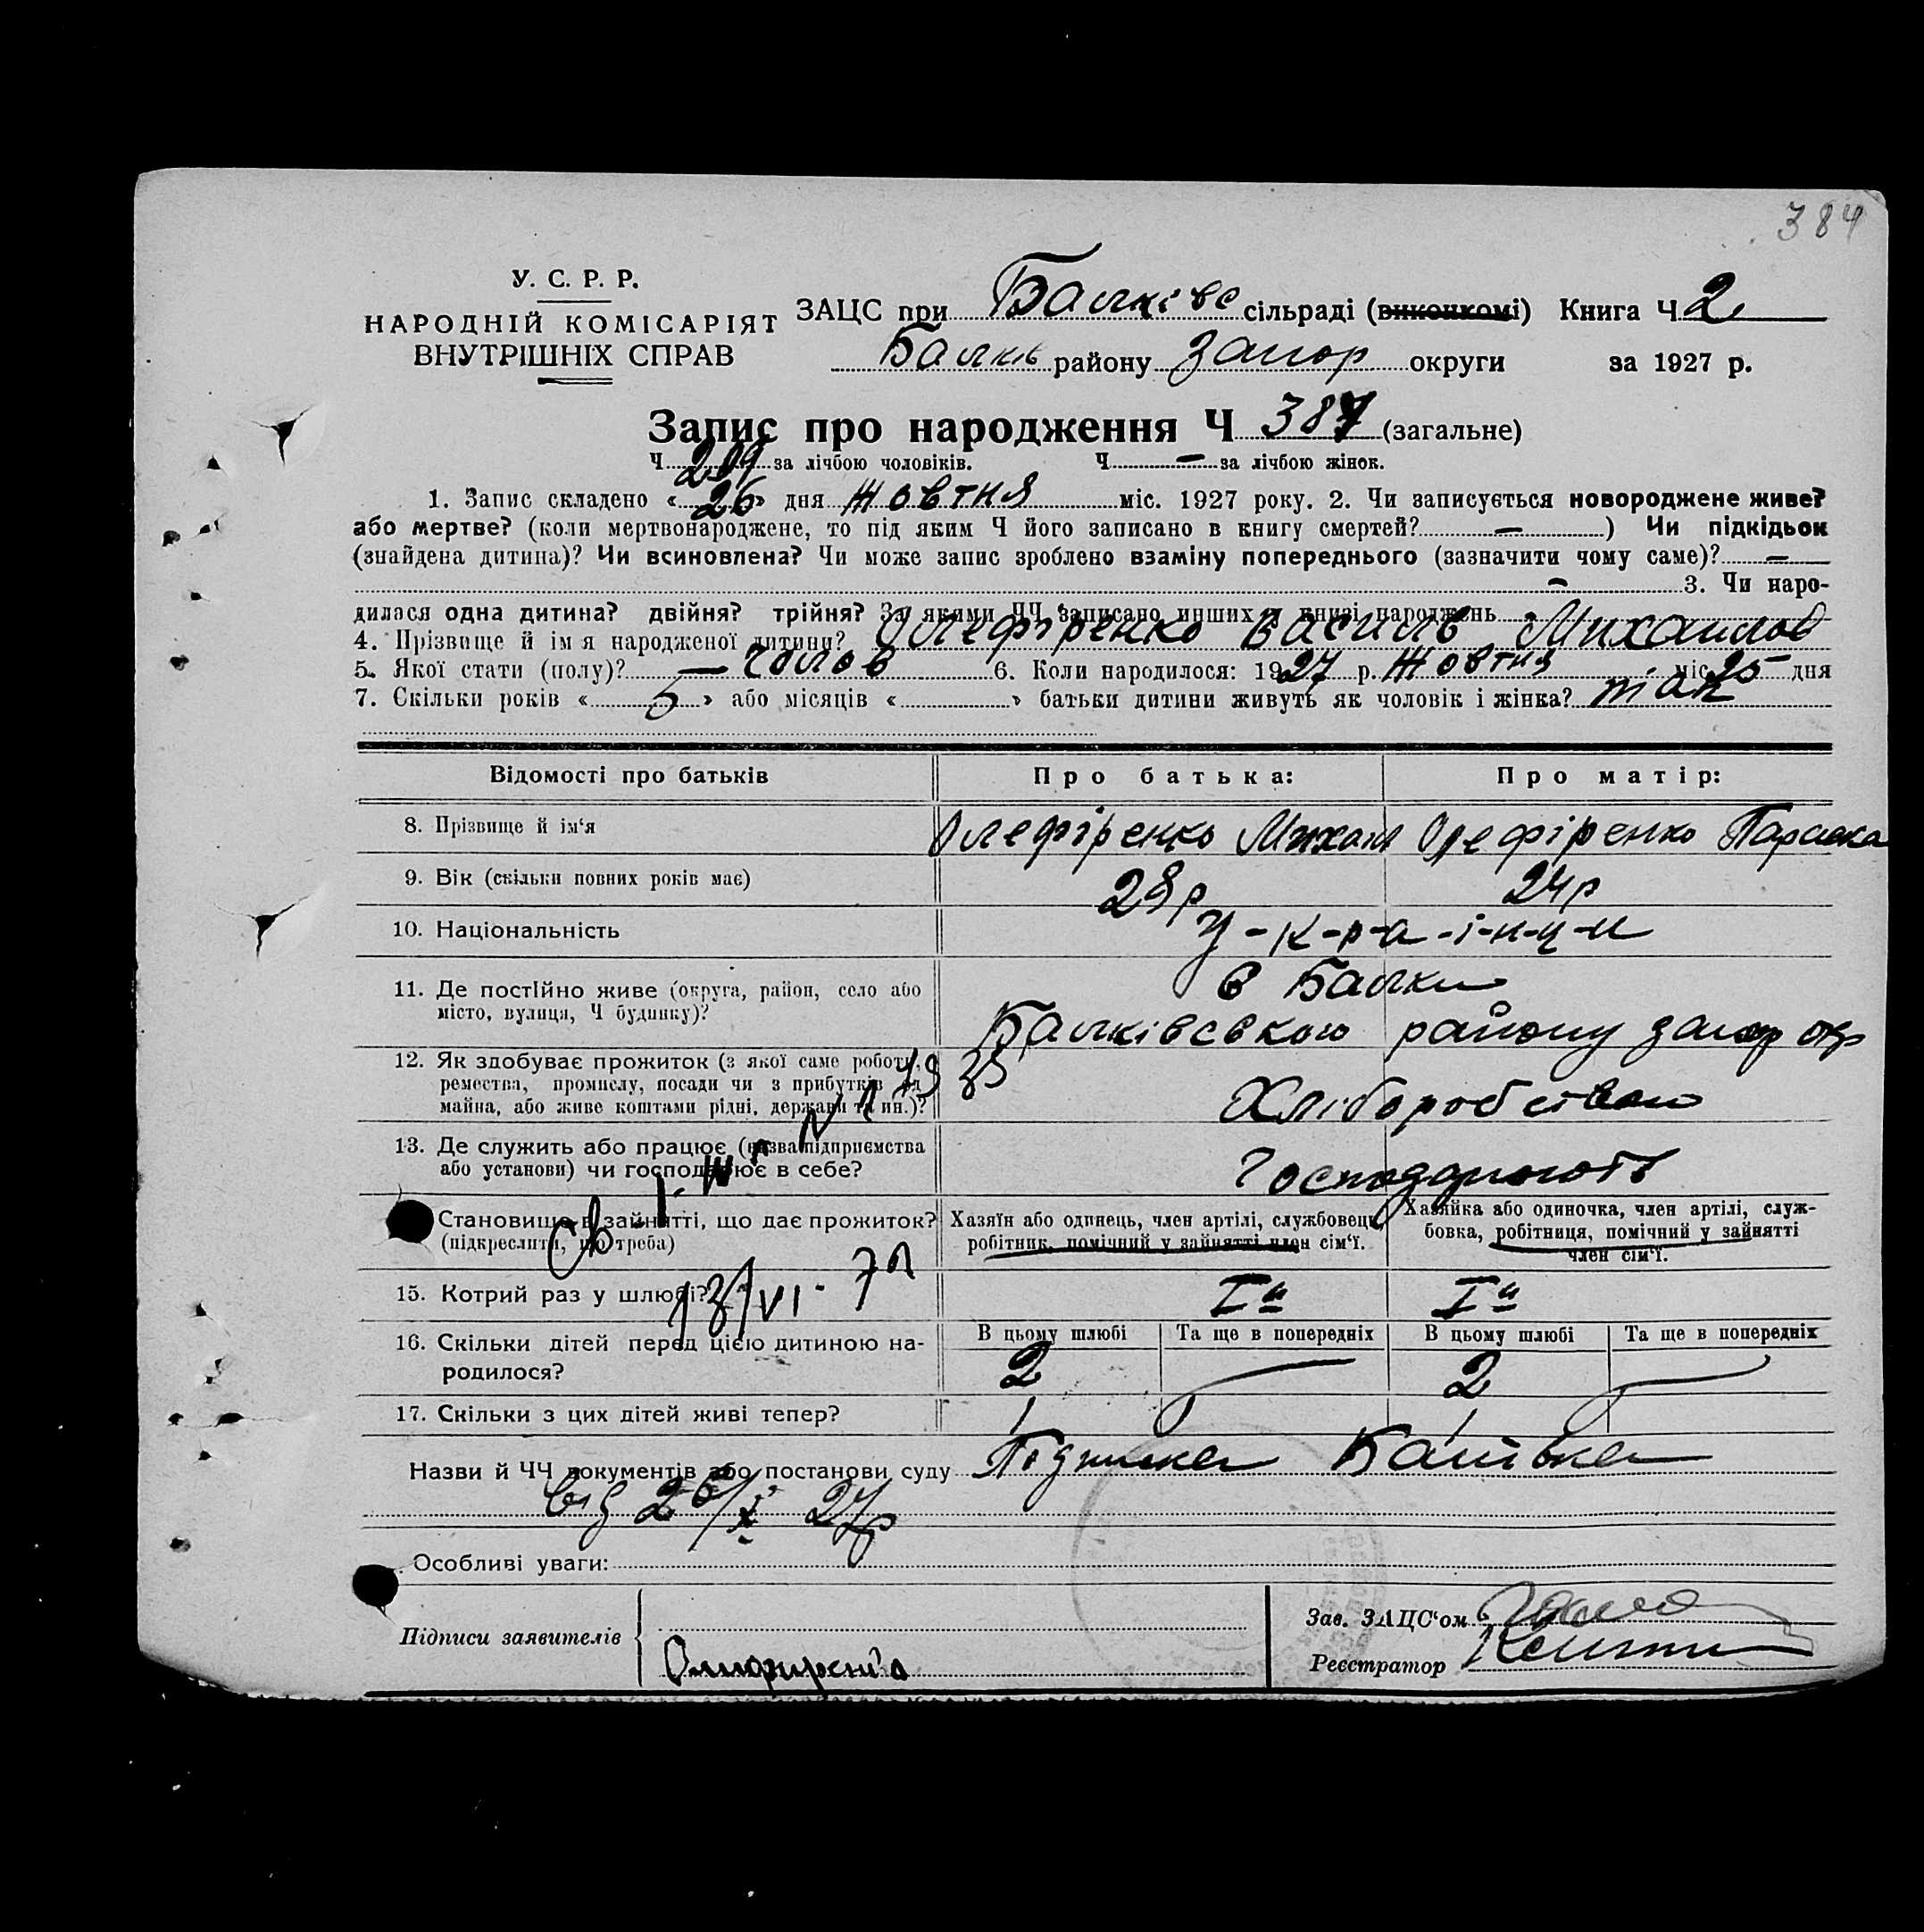 384
У. С. Р. Р.
НАРОДНІЙ КОМІСАРІЯТ
ВНУТРІШНІХ СПРАВ
ЗАЦС при Балківс сільраді (виконкомі) Книга Ч 2
Балків району Запор округи за 1927 р.
Запис про народження Ч 387 (загальне)
Ч 209 за лічбою чоловіків. Ч — за лічбою жінок.
1. Запис складено « 26 » дня жовтня міс. 1927 року. 2. Чи записується новороджене живе?
або мертве? (коли мертвонароджене, то під яким Ч його записано в книгу смертей? — ) Чи підкідьок
(знайдена дитина)? Чи всиновлена? Чи може запис зроблено взаміну попереднього (зазначити чому саме)? —
— 3. Чи наро-
дилася одна дитина? двійня? трійня? За якими ЧЧ записано инших у книзі народжень
4. Прізвище й ім я народженої дитини? Олефіренко Василь Михаилов
5. Якої стати (полу)? — чолов 6. Коли народилося: 1927 р. жовтня міс. 25 дня
7. Скільки років « 5 » або місяців « » батьки дитини живуть як чоловік і жінка? так
Відомості про батьків Про батька: Про матір:
8. Прізвище й ім‘я Олефіренко Михаил Олефіренко Параска
9. Вік (скільки повних років має) 28 р 24 р
10. Національність у-к-р-а-і-н-ц-и
11. Де постійно живе (округа, район, село або в Балки
місто, вулиця, Ч будинку)? Балківсвкого району запор окр
12. Як здобуває прожиток (з якої саме роботи,
ремества, промислу, посади чи з прибутків од
майна, або живе коштами рідні, держави та ин.)? Хліборобством
13. Де служить або працює (назва підприємства
або установи) чи господарює в себе? Господарюють
Становище в зайнятті, що дає прожиток? Хазяїн або одинець, член артілі, службовець, Хазяйка або одиночка, член артілі, служ-
(підкреслити, що треба) робітник, помічний у зайнятті член сім‘ї. бовка, робітниця, помічний у зайнятті
член сім‘ї.
13/VI - 7
15. Котрий раз у шлюбі? Iй Iй
16. Скільки дітей перед цією дитиною на- В цьому шлюбі Та ще в попередніх В цьому шлюбі Та ще в попередніх
родилося? 2 2
17. Скільки з цих дітей живі тепер? 1 1
Назви й ЧЧ документів або постанови суду
від 26/X 27р
Особливі уваги:
Підписи заявителів
Зав. ЗАЦС‘ом
Реєстратор